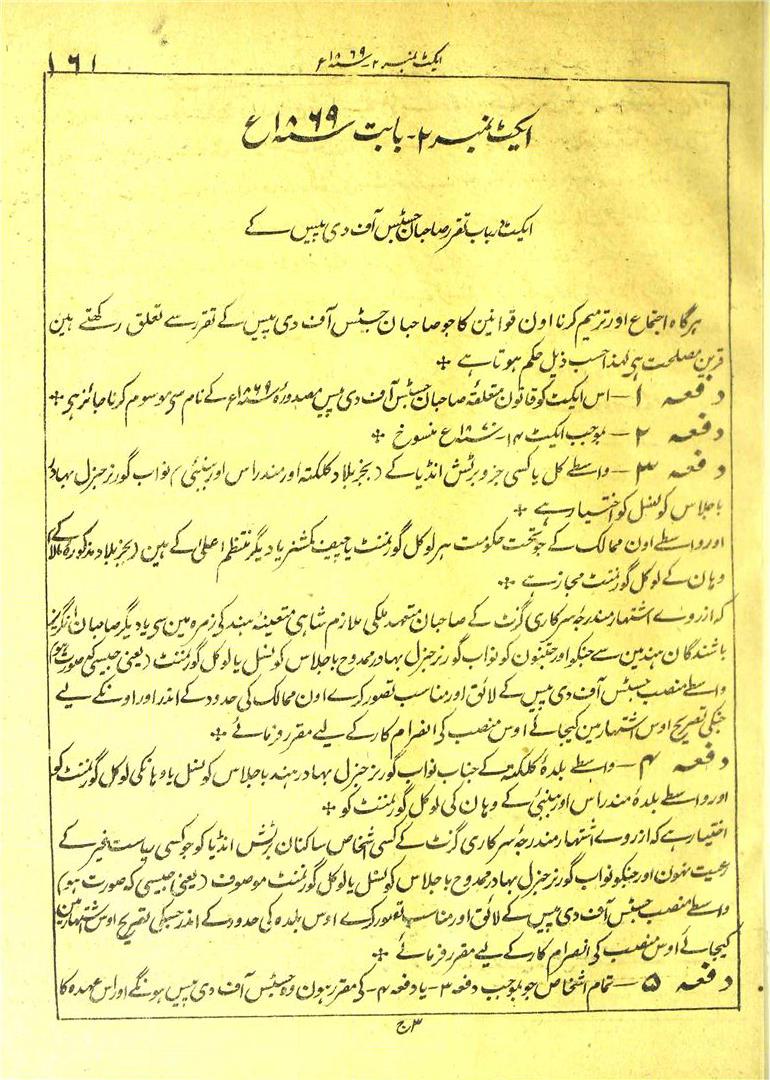 ایکٹ نمبر ۲ - سنہ ۱۸۶۹ع
۱۶۱
ایکٹ نمبر ۲ - بابت سنہ ۱۸۶۹ع
ایکٹ درباب تقرر صاحبان جسٹس آف دی پیس کے
ہرگاہ اجتماع اور ترمیم کرنا اون قوانین کا جو صاحبان جسٹس آف دی پیس کے تقرر سے تعلق رکھتے ہین
قرین مصلحت ہی لہذا حسب ذیل حکم ہوتا ہے ÷
دفعہ ۱ — اس ایکٹ کو قانون متعلقۂ صاحبان جسٹس آف دی پیس مصدورۂ سنہ ۱۸۶۹ع کے نام سی موسوم کرنا جائز ہی ÷
دفعہ ۲ — بموجب ایکٹ ۱۴ - سنہ ۱۸۷۰ع منسوخ ÷
دفعہ ۳ — واسطے کل یا کسی جزو برٹش انڈیا کے (بجز بلاد کلکتہ اور مندراس اور بمبئی) نواب گورنر جنرل بہادر
باجلاس کونسل کو اختیار ہے ÷
اور واسطے اون ممالک کے جو تحت حکومت ہر لوکل گورنمنٹ یا چیف کمشنر یا دیگر منتظم اعلیٰ کے ہین (بجز بلاد مذکورہ بالا کے)
وہان کے لوکل گورنمنٹ مجاز ہے ÷
کہ ازروے اشتہار مندرجہ سرکاری گزٹ کے صاحبان متعہد ملکی ملازم شاہی متعینۂ ہند کی زمرہ مین سی یا دیگر صاحبان انگریز
باشندگان ہند مین سے جنکو اور جتنون کو نواب گورنر جنرل بہادر ممدوح باجلاس کونسل یا لوکل گورنمنٹ (یعنی جیسی کہ صورت ہو)
واسطے منصب جسٹس آف دی پیس کے لائق اور مناسب تصور کرے اون ممالک کی حدود کے اندر اور اونکے لیے
جنکی تصریح اوس اشتہار مین کیجائے اوس منصب کی انصرام کار کے لیے مقرر فرمائے ÷
دفعہ ۴ — واسطے بلدۂ کلکتہ کے جناب نواب گورنر جنرل بہادر ہند باجلاس کونسل یا وہانکی لوکل گورنمنٹ کو
اور واسطے بلدۂ مندراس اور بمبئی کے وہان کی لوکل گورنمنٹ کو ÷
اختیار ہے کہ ازروے اشتہار مندرجہ سرکاری گزٹ کے کسی اشخاص ساکنان برٹش انڈیا کو جو کسی ریاست غیر کے
رعیت نہون اور جنکو نواب گورنر جنرل بہادر ممدوح باجلاس کونسل یا لوکل گورنمنٹ موصوف (یعنی جیسی کہ صورت ہو)
واسطے منصب جسٹس آف دی پیس کے لائق اور مناسب تصور کرے اوس بلدہ کی حدود کے اندر جسکی تصریح اوس اشتہار مین
کیجائے اوس منصب کی انصرام کار کے لیے مقرر فرمائے ÷
دفعہ ۵ — تمام اشخاص جو بموجب دفعہ ۳ - یا دفعہ ۴ - کی مقرر ہون وہ جسٹس آف دی پیس ہونگے اور اس عہدہ کا
ج۳